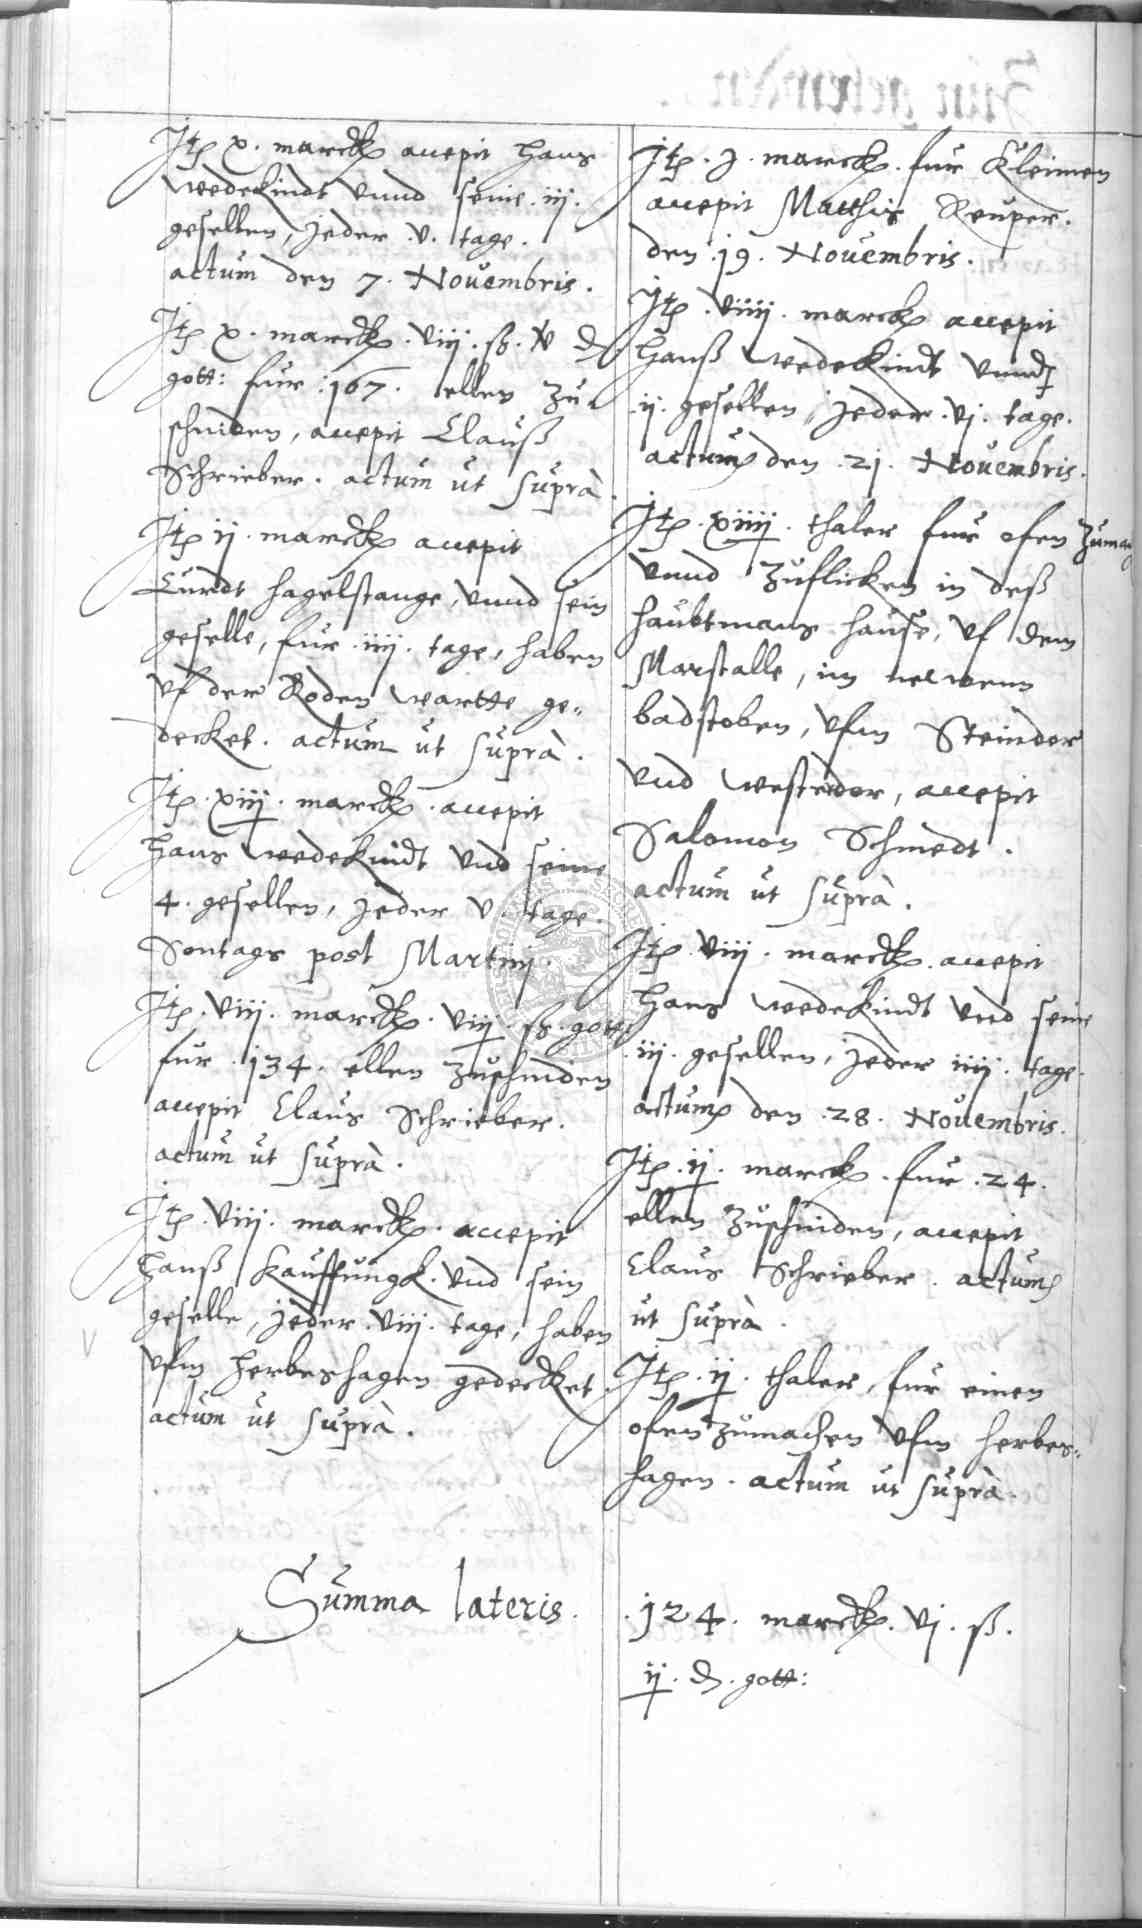 Jtem x. marck accepit Hans
wedekindt vnnd seine .iij.
gesellen, jeder .v. tage.
actum den 7. Nouembris.
Jtem x. marck. viij. ß. v d
gott: fur .167. ellen zu
schniden, accepit Clauß
Schrieber. actum ut suprà.
Jtem ij. marck accepit
Curdt Hagelstange, vnnd sein
geselle, fur .iiij. tage, haben
vf der Roden wartte ge-
decket. actum ut suprà.
Jtem .xiij. marck. accepit
Hans wedekindt vnd seine
4. gesellen, jeder v. tage.
Sontags post Martinj.
Jtem .viij. marck. viij. ß. gott:
fur .134. ellen zuschniden
accepit Claus Schrieber.
actum ut suprà.
Jtem .viij. marck. accepit
Hanß Kauffungk. vnd sein
geselle, jeder .viij. tage, haben
vfm Herbeshagen gedecket.
actum ut suprà.
Jtem .j. marck. fur Kleimen
accepit Matthis Reuper.
den .19. Nouembris.
Jtem .viiij. marck accepit
Hanß wedekindt vnnd
ij. gesellen, jeder .vj. tage.
actum den .21. Nouembris.
Jtem .xiiij. thaler fur ofen
vnnd zuflicken in deß
haubtmans hause, vf dem
Marstalle, im newenn
badstoben, vfm Steindor
vnd westerdor, accepit
Salomon Schmedt.
actum ut suprà.
Jtem viij. marck. accepit
Hans wedekindt vnd seine
.iij. gesellen, jeder iiij. tage.
actum den .28. Nouembris.
Jtem .ij. marck. fur .24.
ellen zuschniden, accepit
Claus Schrieber. actum
ut suprà.
Jtem .ij. thaler, fur einen
ofen zumachen vfm Herbes-
hagen. actum ut suprà.
Summa lateris.
.124. marck. vj. ß.
ij. d. gott: